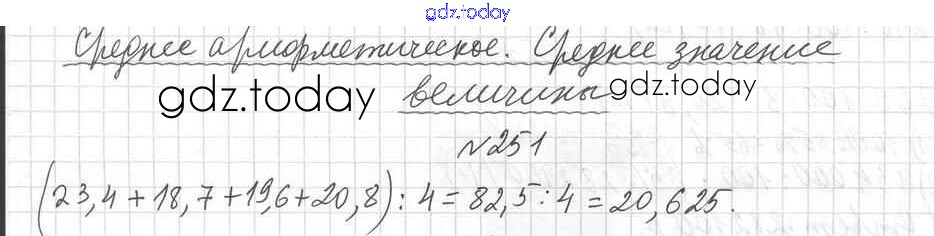 gdz.today
Среднее арифметическое. Среднее значение
gdz.today величины gdz.today
№251
(23,4+18,7+19,6+20,8):4=82,5:4=20,625.